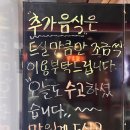 추가음식은
드실만큼만 조금씩
이용부탁드립니다
오늘도 수고하셨
습니다,~
맛있게 드시고